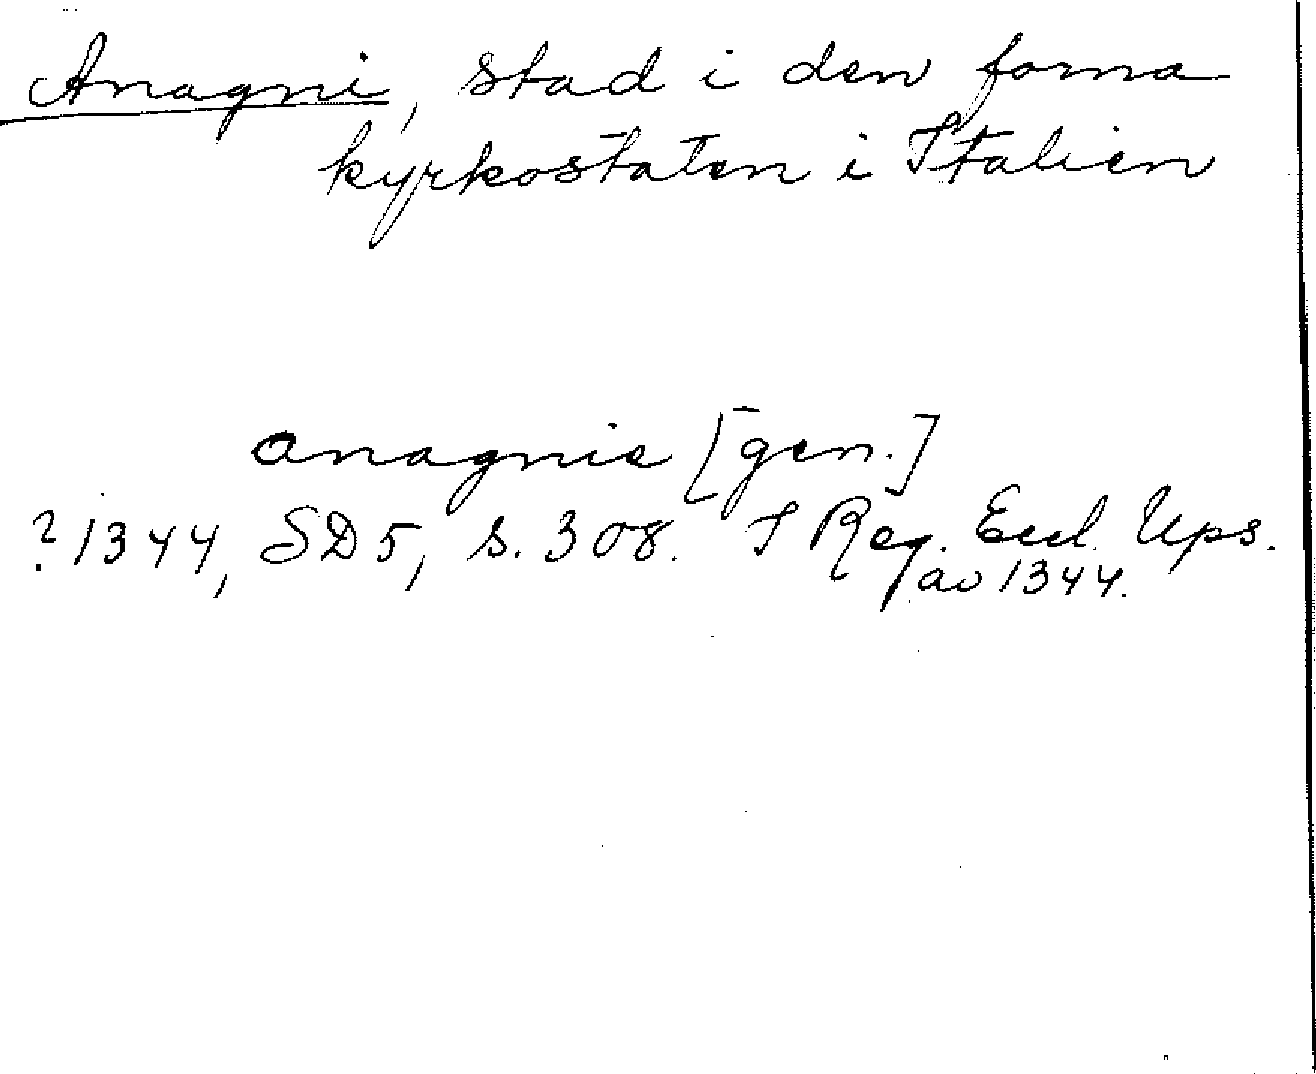 Anagni, stad i den forna
kyrkostaten i Italien
anagnie [gen.]
? 1344, SD 5, s. 308. I Reg. Eccl. Ups.
av 1344.